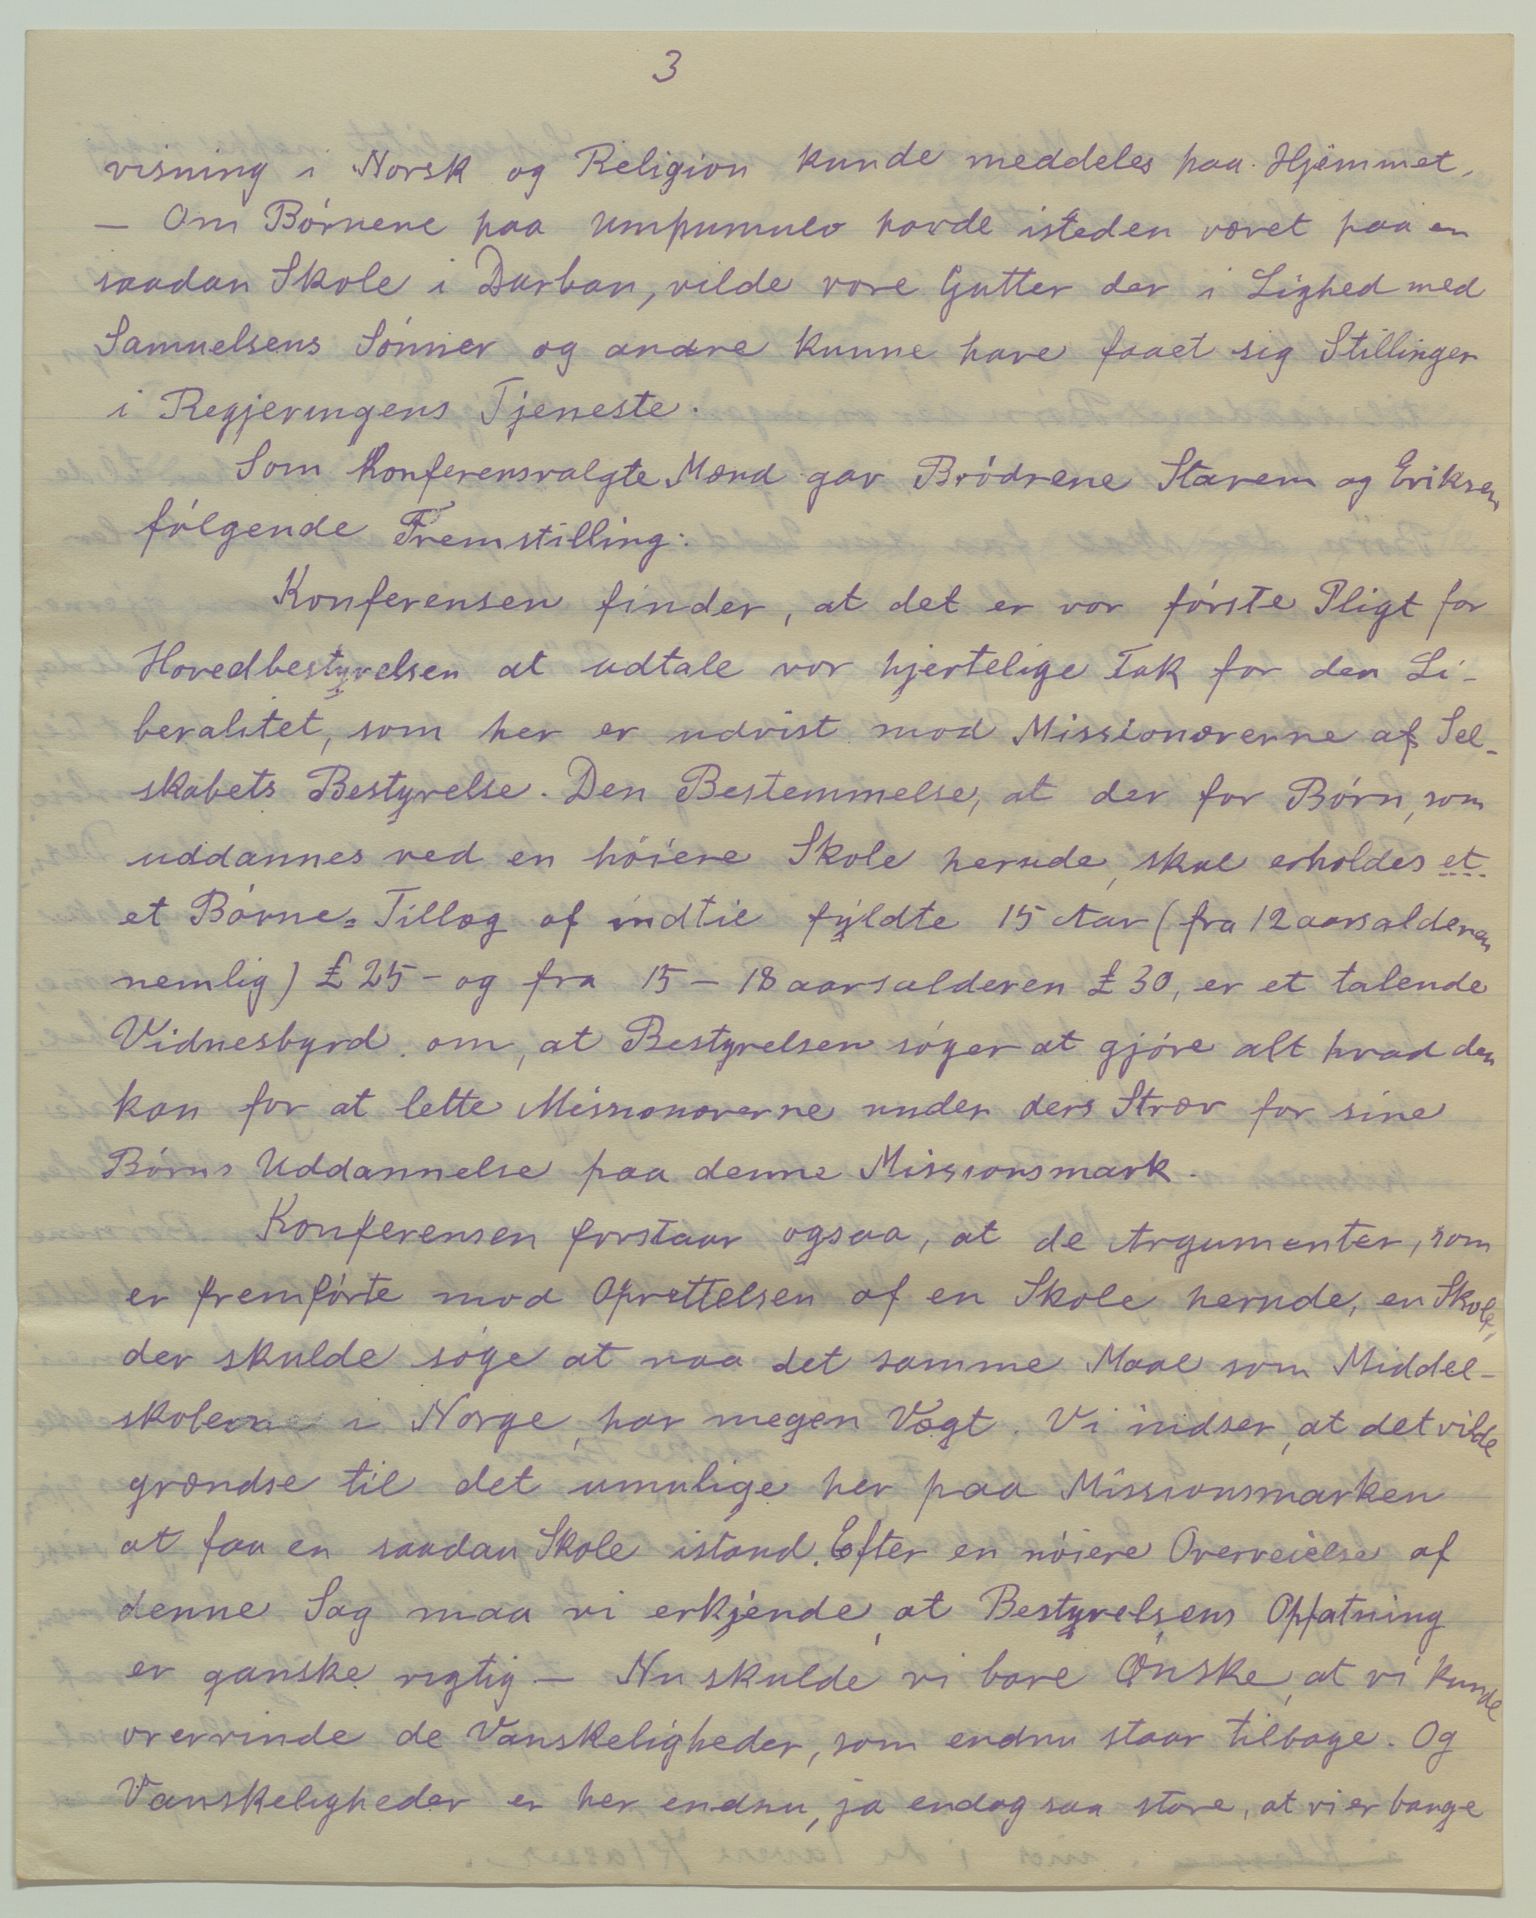 3
visning i Norsk og Religion kunde meddeles paa Hjemmet.
— Om Børnene paa Umpumulo havde isteden været paa en
saadan Skole i Durban, vilde vore Gutter der i Lighed med
Samuelsens Sønner og andre kunne have faaet sig Stillinger
i Regjeringens Tjeneste.
Som Konferensvalgte Mænd gav Brødrene Stavem og Eriksen
følgende Fremstilling:
Konferensen finder, at det er vor første Pligt for
Hovedbestyrelsen at udtale vor hjertelige Tak for den Li-
beralitet, som her er udvist mod Missionærerne af Sel-
skabets Bestyrelse. Den Bestemmelse, at der for Børn, som
uddannes ved en høiere Skole herude, skal erholdes et
et Børne-Tillæg af indtil fyldte 15 Aar (fra 12 aarsalderen
nemlig) £ 25 – og fra 15 – 18 aarsalderen £ 30, er et talende
Vidnesbyrd om, at Bestyrelsen søger at gjøre alt hvad den
kan for at lette Missionærerne under ders Stræv for sine
Børns Uddannelse paa denne Missionsmark.
Konferensen forstaar ogsaa, at de Argumenter, som
er fremførte mod Oprettelsen af en Skole herude, en Skole,
der skulde søge at naa det samme Maal som Middel-
skolerne i Norge, har megen Vægt. Vi indser, at det vilde
grændse til det umulige her paa Missionsmarken
at faa en saadan Skole istand. Efter en nøiere Overveielse af
denne Sag maa vi erkjende, at Bestyrelsens Opfatning
er ganske rigtig — Nu skulde vi bare Ønske, at vi kunde
overvinde de Vanskeligheder, som endnu staar tilbage. Og
Vanskeligheder er her endnu, ja endog saa store, at vi er bange